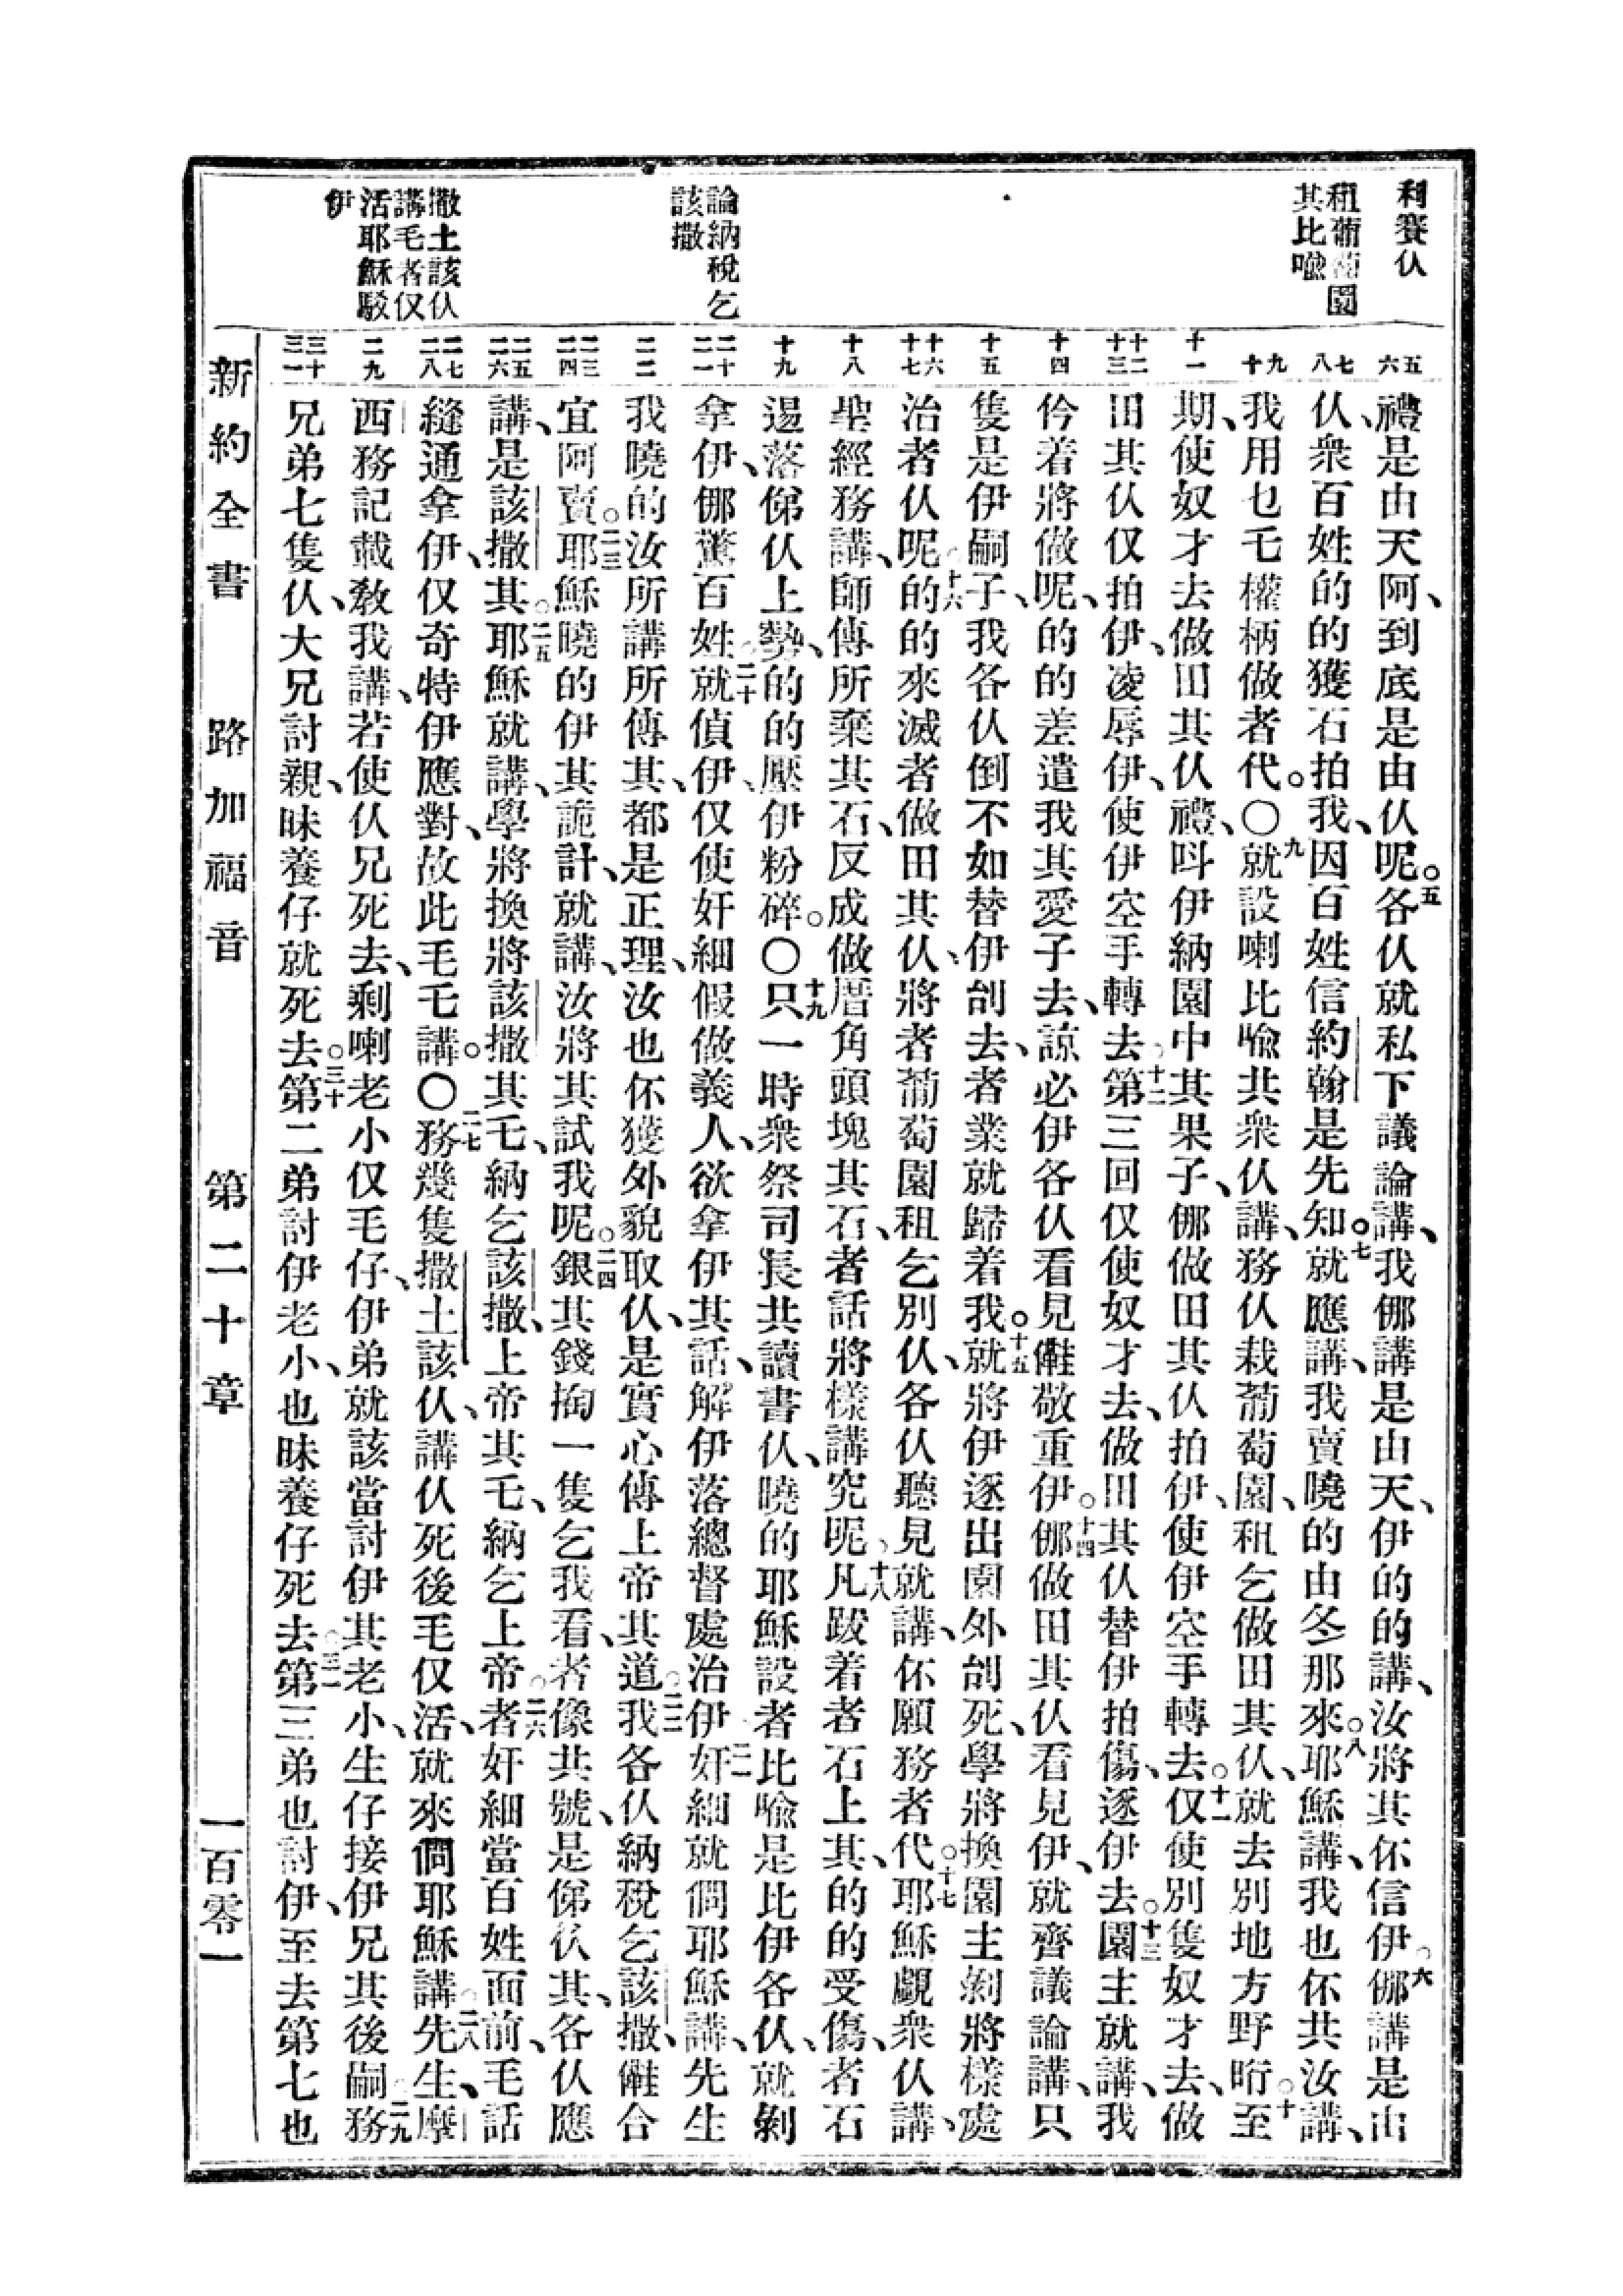 利賽仈
租葡萄園
其比喻
論納稅乞
該撒
撒土該仈
講毛者仅
活耶穌駁
伊
五
六
七
八
九
十
十一
十二
十三
十四
十五
十六
十七
十八
十九
二十
二一
二二
二三
二四
二五
二六
二七
二八
二九
三十
三一
禮是由天阿、到底是由仈呢。五各仈就私下議論講、我㑚講是由天、伊的的講、汝將其伓信伊。六㑚講是由
仈、衆百姓的的獲石拍我、因百姓信約翰是先知。七就應講、我賣曉的由冬那來。八耶穌講、我也伓共汝講、
我用乜乇權柄做者代。〇九就設喇比喩共衆仈講、務仈栽葡萄園、租乞做田其仈、就去別地方野𥅽。十至
期、使奴才去做田其仈禮、呌伊納園中其果子、㑚做田其仈拍伊、使伊空手轉去。十一仅使別隻奴才去、做
田其仈仅拍伊、凌辱伊、使伊空手轉去。十二第三回仅使奴才去、做田其仈替伊拍傷、逐伊去。十三園主就講、我
仱着將做呢、的的差遣我其愛子去、諒必伊各仈看見𠆧敬重伊。十四㑚做田其仈看見伊、就齊議論講、只
隻是伊嗣子、我各仈倒不如替伊刣去、者業就歸着我。十五就將伊逐出園外刣死、學將換園主𠞭將樣處
治者仈呢。十六的的來滅者做田其仈、將者葡萄園租乞別仈、各仈聽見就講、伓願務者代。十七耶穌覷衆仈講、
聖經務講、師傅所棄其石、反成做厝角頭塊其石、者話將樣講究呢。十八凡跋着者石上其、的的受傷、者石
逿落俤仈上勢、的的壓伊粉碎。〇十九只一時衆祭司長共讀書仈、曉的耶穌設者比喩是比伊各仈、就𠞭
拿伊、㑚驚百姓。二十就偵伊、仅使奸細假做義人、欲拿伊其話、解伊落總督處治伊。二一奸細就問耶穌講、先生
我曉的汝所講所傳其、都是正理、汝也伓獲外貌取仈、是實心傳上帝其道。二二我各仈納稅乞該撒、𠆧合
宜阿賣。二三耶穌曉的伊其詭計、就講、汝將其試我呢。二四銀其錢掏一隻乞我看、者像共號、是俤仈其、各仈應
講、是該撒其。二五耶穌就講、學將換將該撒其乇、納乞該撒、上帝其乇、納乞上帝。二六者奸細當百姓面前、毛話
縫通拿伊、仅奇特伊應對、故此毛乇講。〇二七務幾隻撒土該仈、講仈死後毛仅活、就來問耶穌講。二八先生、摩
西務記載敎我講、若使仈兄死去、剩喇老小仅毛仔、伊弟就該當討伊其老小、生仔接伊兄其後嗣。二九務
兄弟七隻仈、大兄討親、昧養仔就死去。三十第二弟討伊老小、也昧養仔死去。三一第三弟也討伊、至去第七也
新約全書 路加福音 第二十章 一百零一